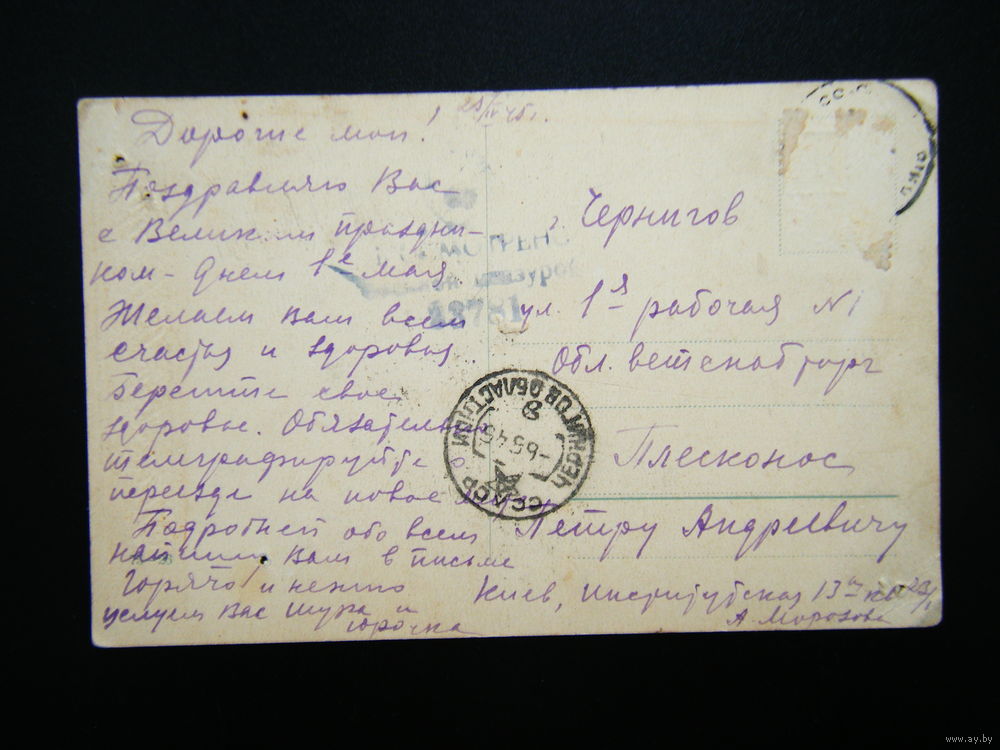 23/IV 45 г.
Дорогие мои!
Поздравляю Вас
с Великим праздни-
ком - днем 1е мая.
Желаем вам всем
счастья и здоровья
берегите свое
здоровье. Обязательно
телеграфируйте о
переезде на новое
Подробней обо всем
напишем Вам в письме
Горячо и нежно
целуем Вас Шура и
Юрочка
г. Чернигов
ул. 1я рабочая №1
Обл. ветснабторг
Плесконос
Петру Андреевичу
Киев, Институтская 13а кв
А. Морозова
ПРОСМОТРЕНО
Военной Цензурой
ЧЕРНИГОВ ОБЛАСТНОЙ
-6 5 45
СССР
www.ay.by